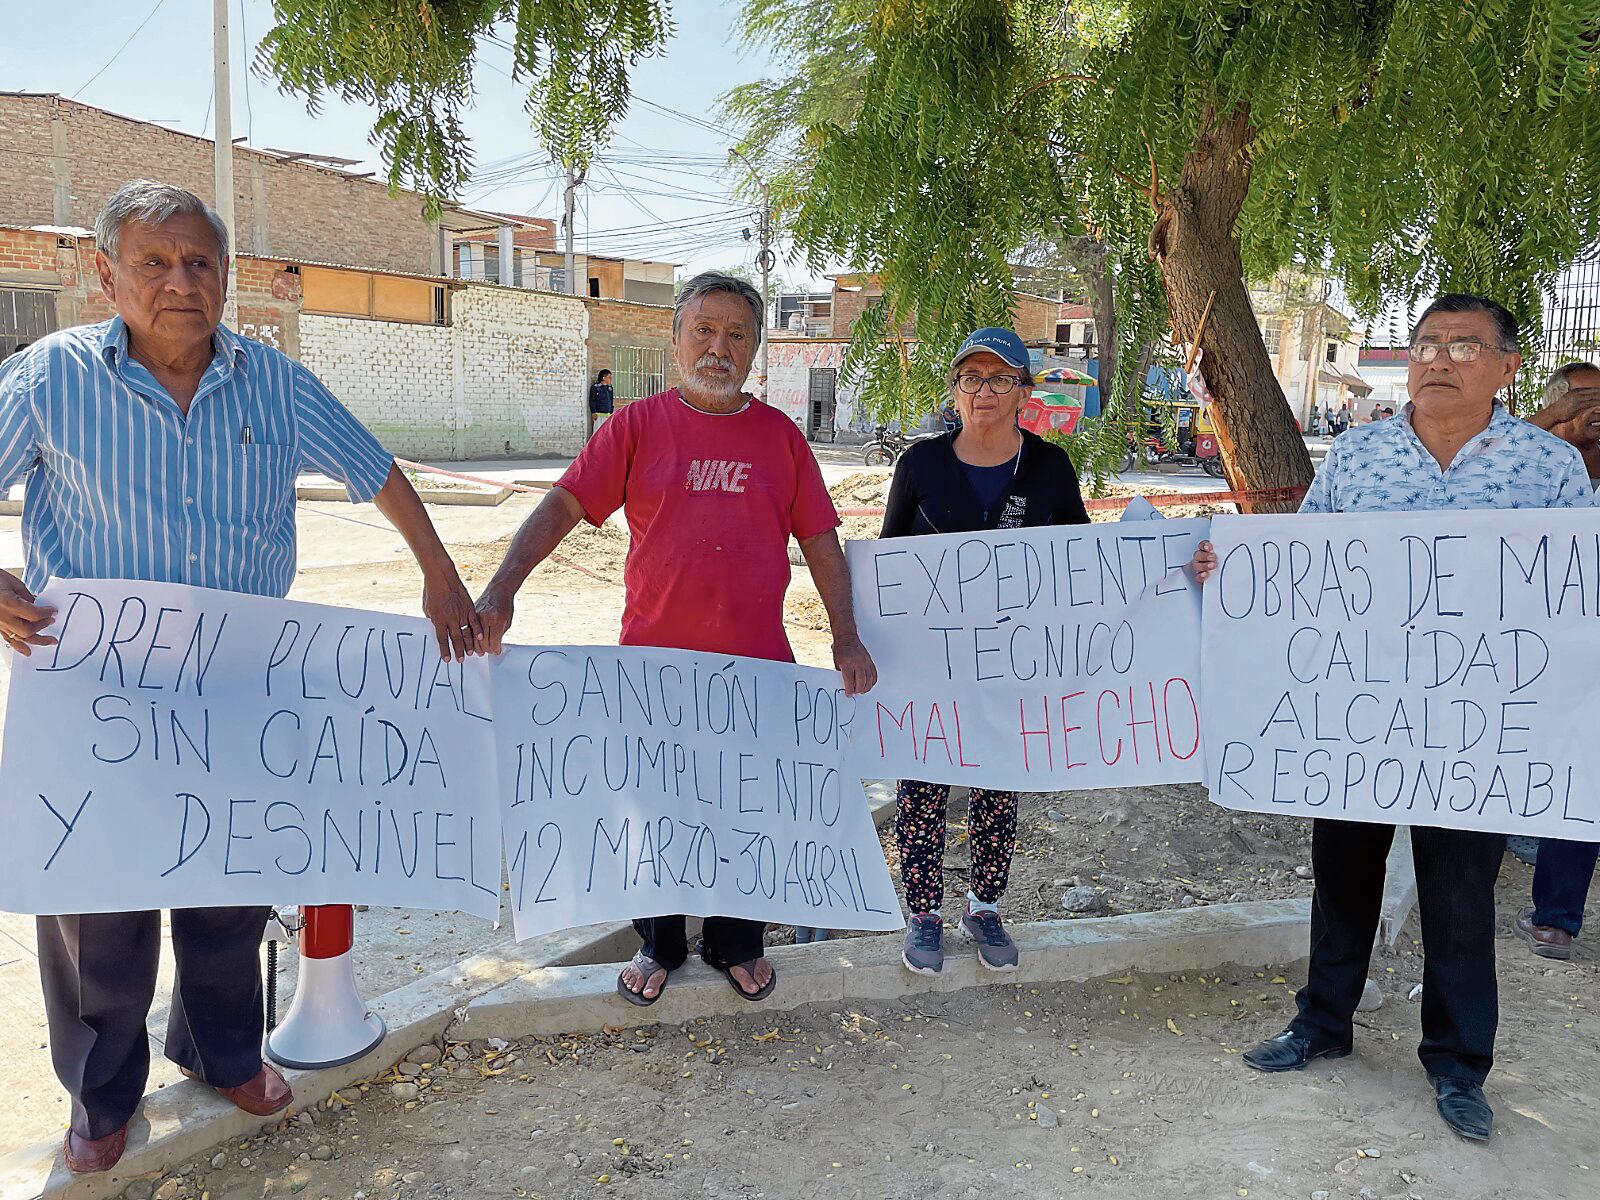 DREN PLUVIAL
SIN CAÍDA
Y DESNIVEL
SANCIÓN POR
INCUMPLIENTO
12 MARZO-30 ABRIL
EXPEDIENTE
TÉCNICO
MAL HECHO
OBRAS DE MAL
CALIDAD
ALCALDE
RESPONSABL
NIKE
CAJA PIURA